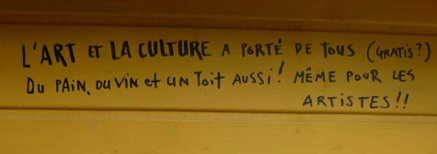 L'ART ET LA CULTURE A PORTÉ DE TOUS (GRATIS?)
DU PAIN, DU VIN et UN Toit AUSSI! MÊME POUR LES
ARTISTES!!